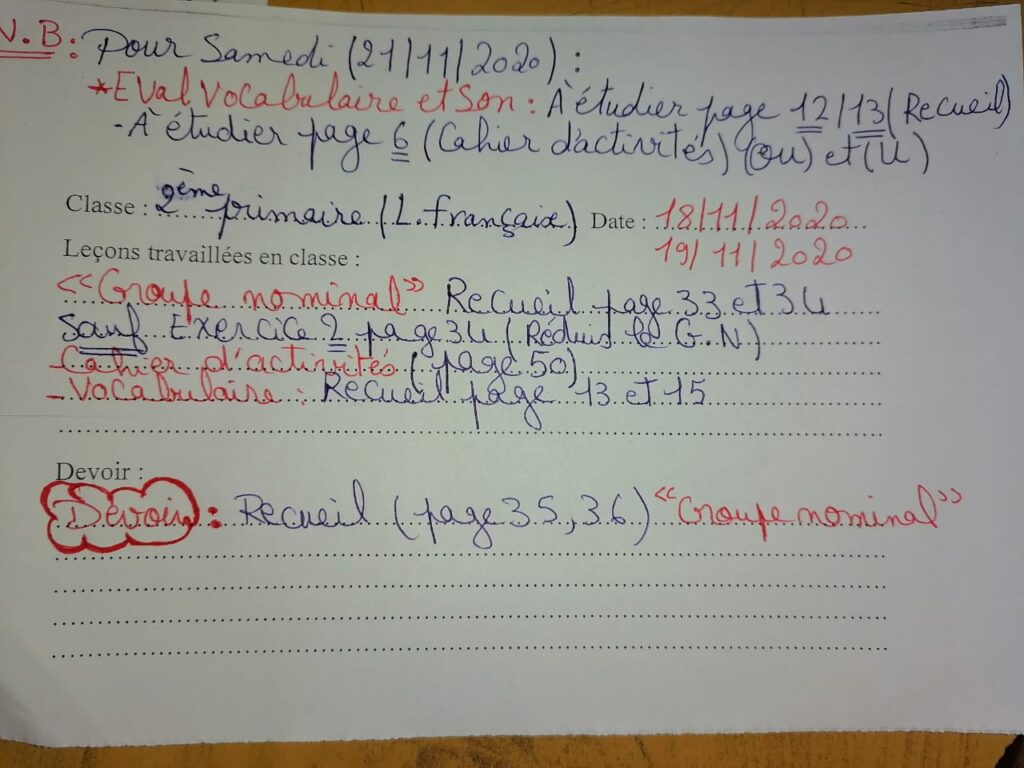 N.B: Pour Samedi (21/11/2020) :
*EVal Vocabulaire et Son : A étudier page 12/13 (Recueil)
- A étudier page 6 (Cahier d'activités) (ou) et (U)
Classe : 2ème primaire (L. française) Date : 18/11/2020
19/11/2020
Leçons travaillées en classe :
"Groupe nominal" Recueil page 33 et 34
Sauf Exercice 2 page 34 (Réduis le G.N)
- Cahier d'activités (page 50)
- Vocabulaire : Recueil page 13 et 15
Devoir :
Devoir : Recueil (page 35, 36) "Groupe nominal"